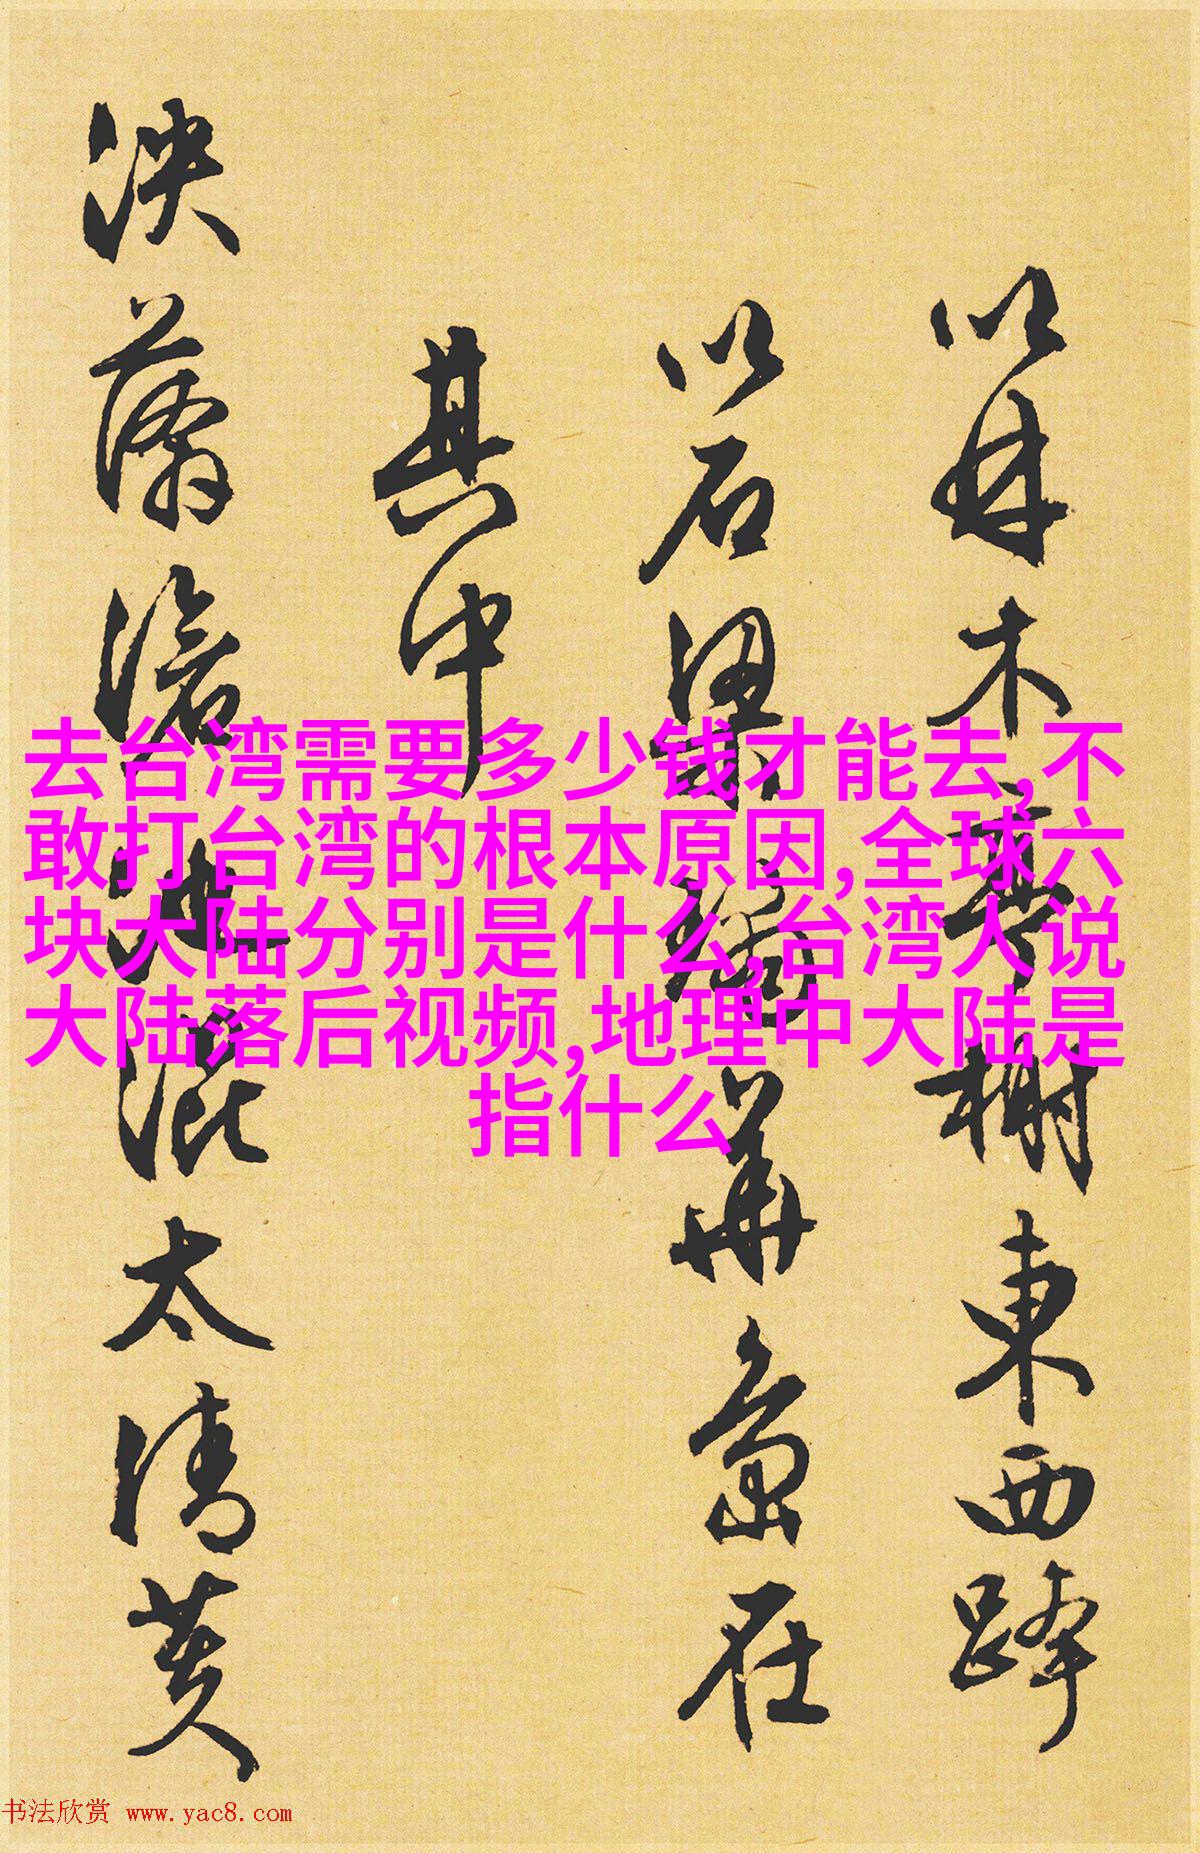 以林木交榭東西跨
以石梁翁華島在
其中
泱蒲滄池混太清荑
去台湾需要多少钱才能去,不
敢打台湾的根本原因,全球六
块大陆分别是什么,台湾人说
大陆落后视频,地理中大陆是
指什么
书法欣赏 www.yac8.com